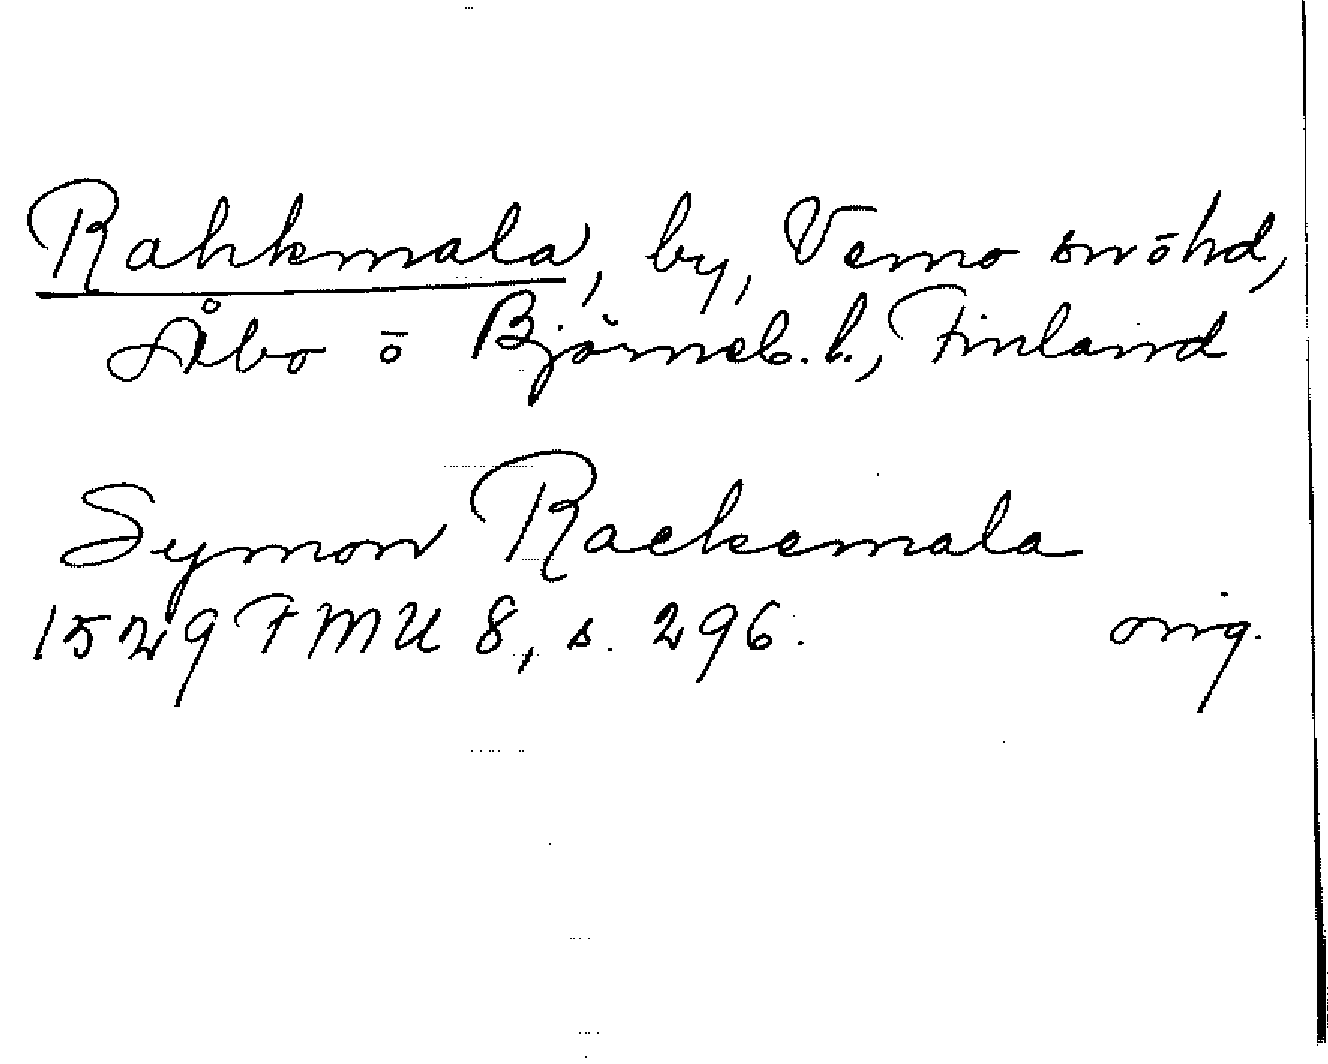 Rahkmala, by, Vemo snöhd,
Åbo o Björneb. l., Finland
Symon Rackemala
1529 FMU 8, s. 296. orig.